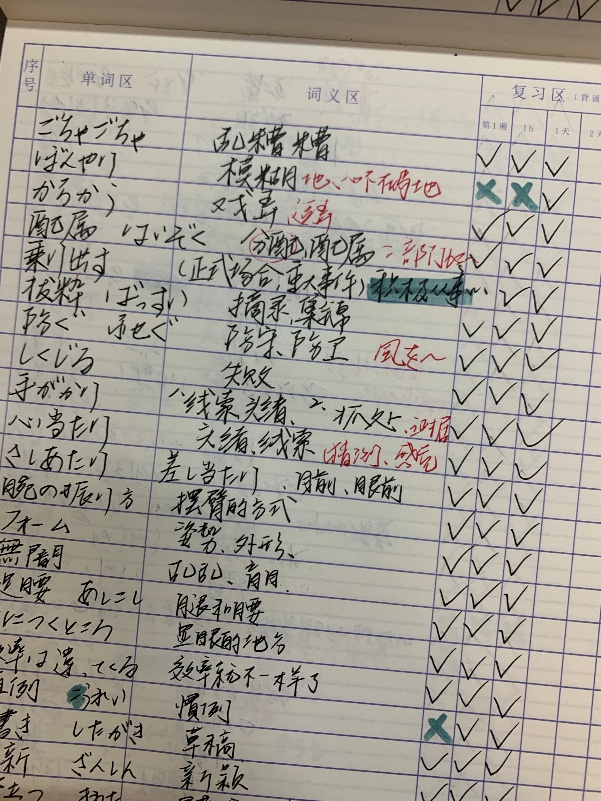 序号 单词区 词义区 复习区（普通
第1遍 1h 1天 2天
ごちゃごちゃ 乱糟糟
ぼんやり 模糊地、心不在焉地
からかう 戏弄 逗弄
配属 はいぞく 分配 配属 部门
乗り出す (正式场合,重大事件) 积极从事…
抜粋 ばっすい 摘录,集锦
防ぐ ふせぐ 防守、防卫 風を〜
しくじる 失败
手がかり 1.线索,头绪、2.抓处
心当たり 头绪,线索
さしあたり 差し当たり 目前、眼前
腕の振り方 摆臂的方式
フォーム 姿势、外形、
無暗 乱乱、盲目.
足腰 あしこし 腿和腰
につくところ 显眼的地方
率は違ってくる 效率就不一样了
例 ざれい 惯例
書き したがき 草稿
新 ざんしん 新颖